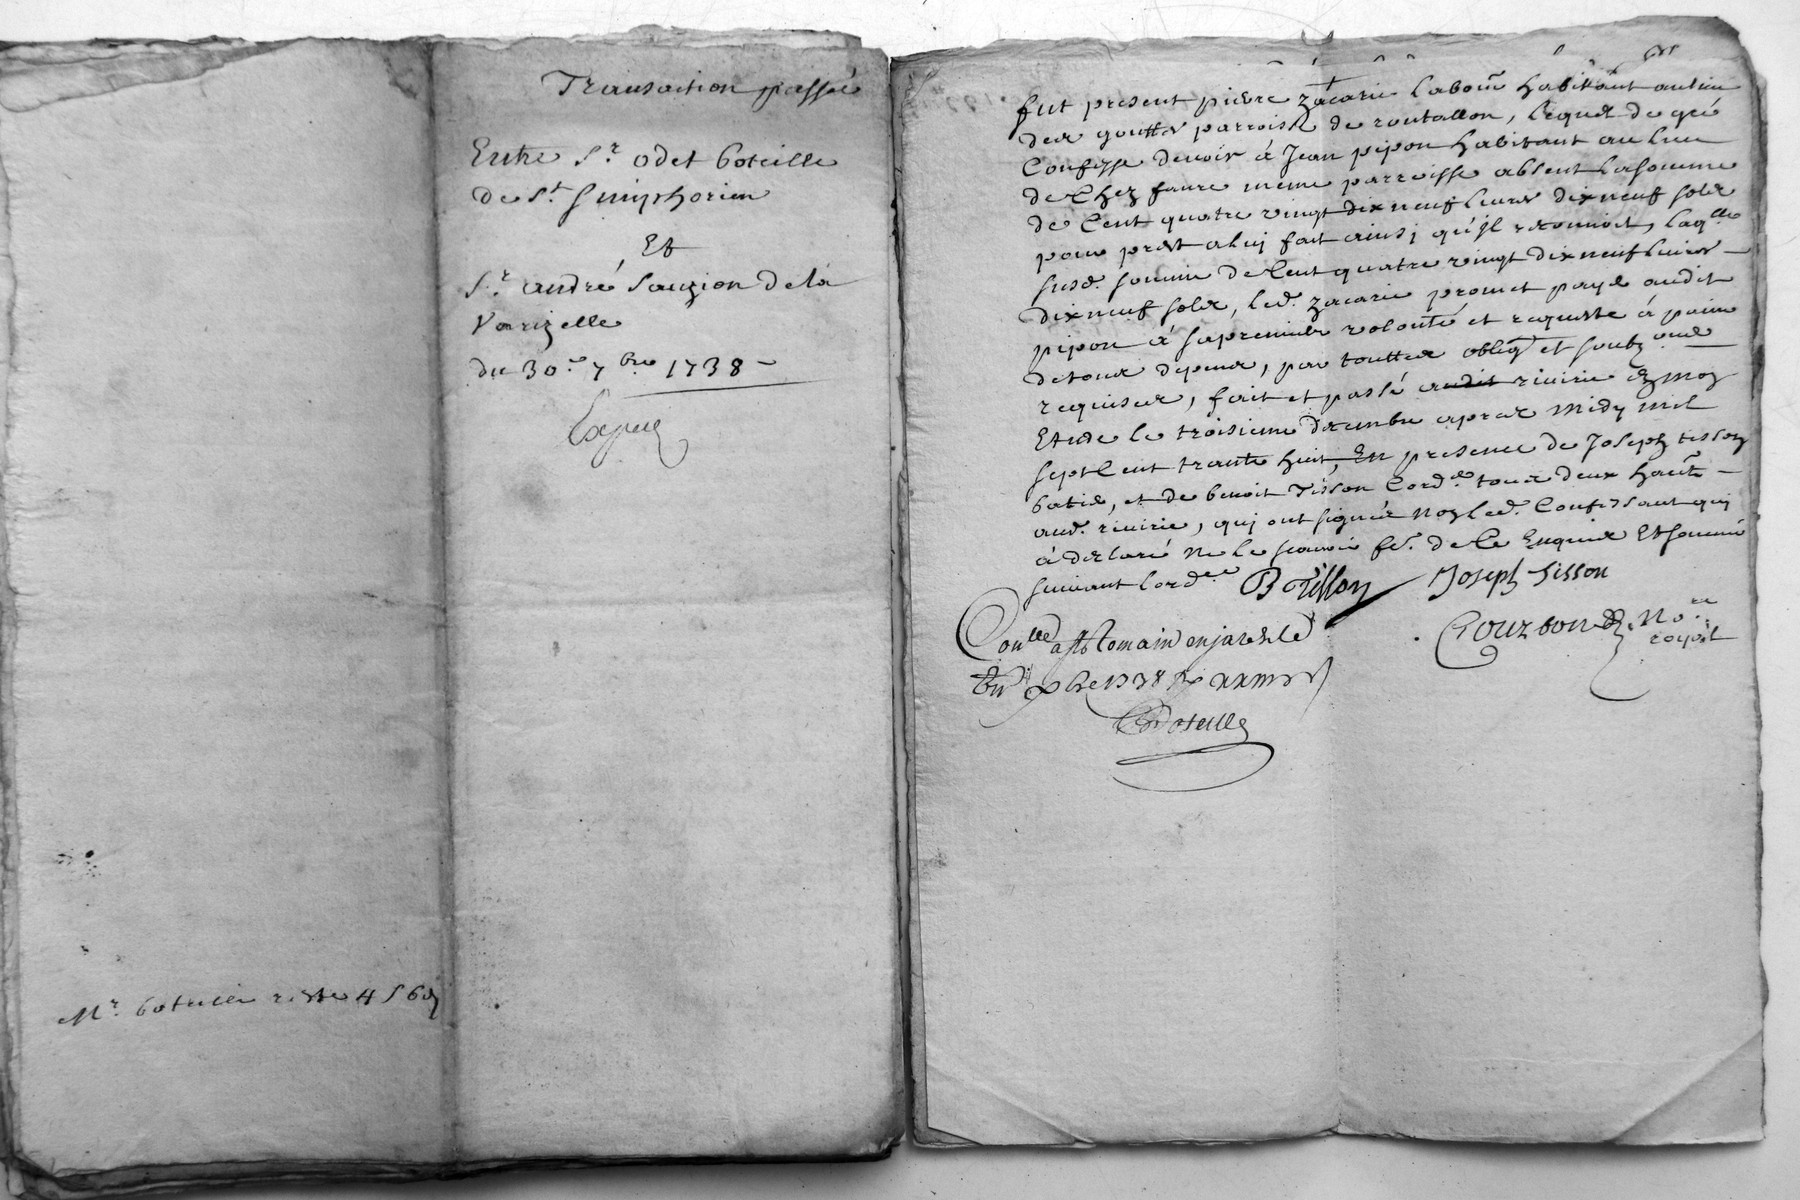 Transaction passée
Entre Sr odet boteille
de St Simphorien
Et
Sr andré Sauzion de la
Varizelle
du 30e 7bre 1738
Mr boteille reste 4 S 6d
fut present pierre zacarie labour habitant au lieu
des gouttes parroisse de rontallon, lequel de gré
Confesse devoir à Jean pipon habitant au lieu
de Chez faure meme parroisse absent la somme
de Cent quatre vingt dix neuf livres dix neuf sols
pour prest a luj fait ainsj qu'jl reconnoit, laqlle
susd. somme de Cent quatre vingt dix neuf livres
dix neuf sols, led. zacarie promet payé audit
pipon à sa premiere volonté et requeste à paine
de tous depens, par touttes obliqn et soubzons
requises, fait et passé audit riverie Ez moy
Etude le troisieme decembre apres midy mil
sept Cent trante huit, En presence de Joseph tisson
batie, et de benoit Tisson Cordr tous deux habts
aud. riverie, quj ont signés non led. Confessant quj
à declaré ne le scavoir fe. de Ce Enquis Et sommé
suivant lordce B Tisson Joseph tisson
Conllé a St Romain en jarest le
Xbre 1738
Courbon No.re
royal
Boteille